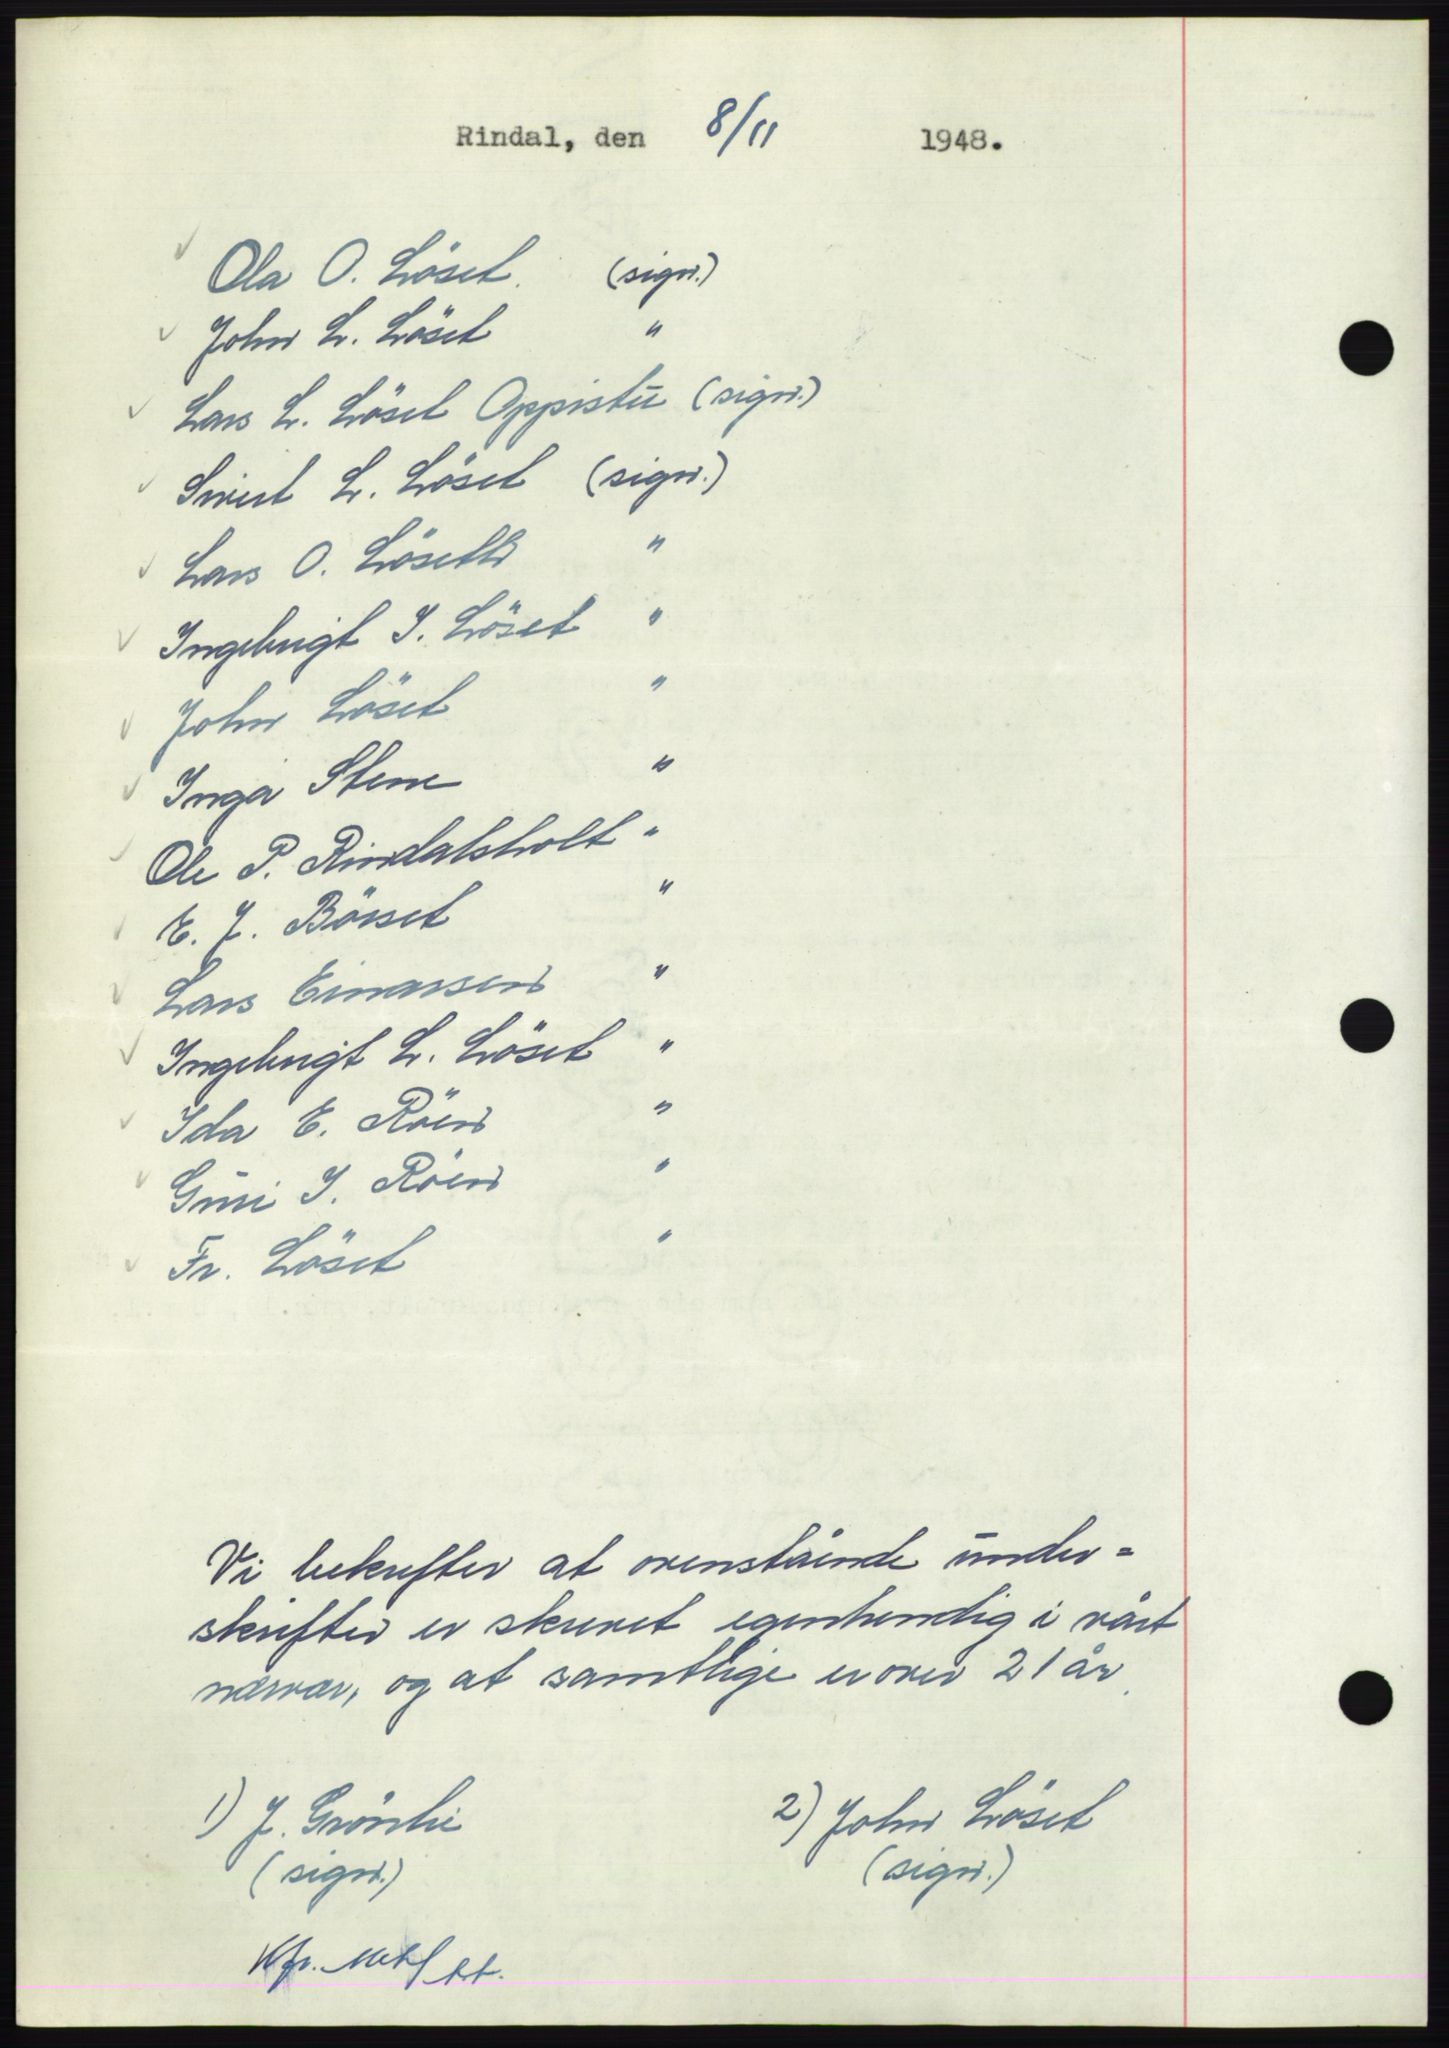 Rindal, den 8/11 1948.
Ola O. Löset. (sign.)
John L. Löset "
Lars L. Löset Oppistu (sign.)
Sivert L. Löset (sign.)
Lars O. Löseth "
Ingebrigt I. Löset "
John Löset "
Inga Stene "
Ole P. Rindalsholt "
E. J. Börset "
Lars Einarsen "
Ingebrigt L. Löset "
Ida E. Röen "
Guri I. Röen "
Fr. Löset "
Vi bekrefter at ovenstående under=
skrifter er skrevet egenhendig i vårt
nærvær, og at samtlige er over 21 år.
1) J. Grönli 2) John Löset
(sign.) (sign.)